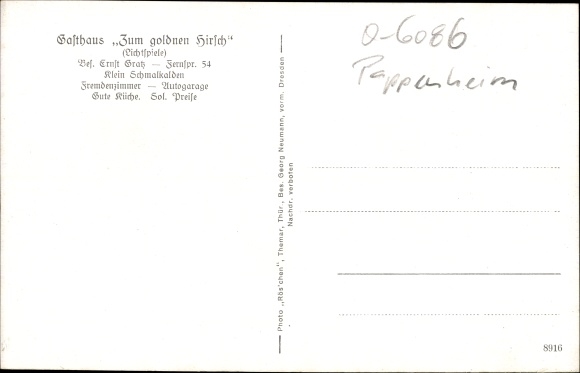 Gasthaus „Zum goldnen Hirsch“
(Lichtspiele)
Bes. Ernst Gratz — Fernspr. 54
Klein Schmalkalden
Fremdenzimmer — Autogarage
Gute Küche. Sol. Preise
O-6086
Pappenheim
Photo „Rös'chen“, Themar, Thür., Bes. Georg Neumann, vorm. Dresden
Nachdr. verboten
8916